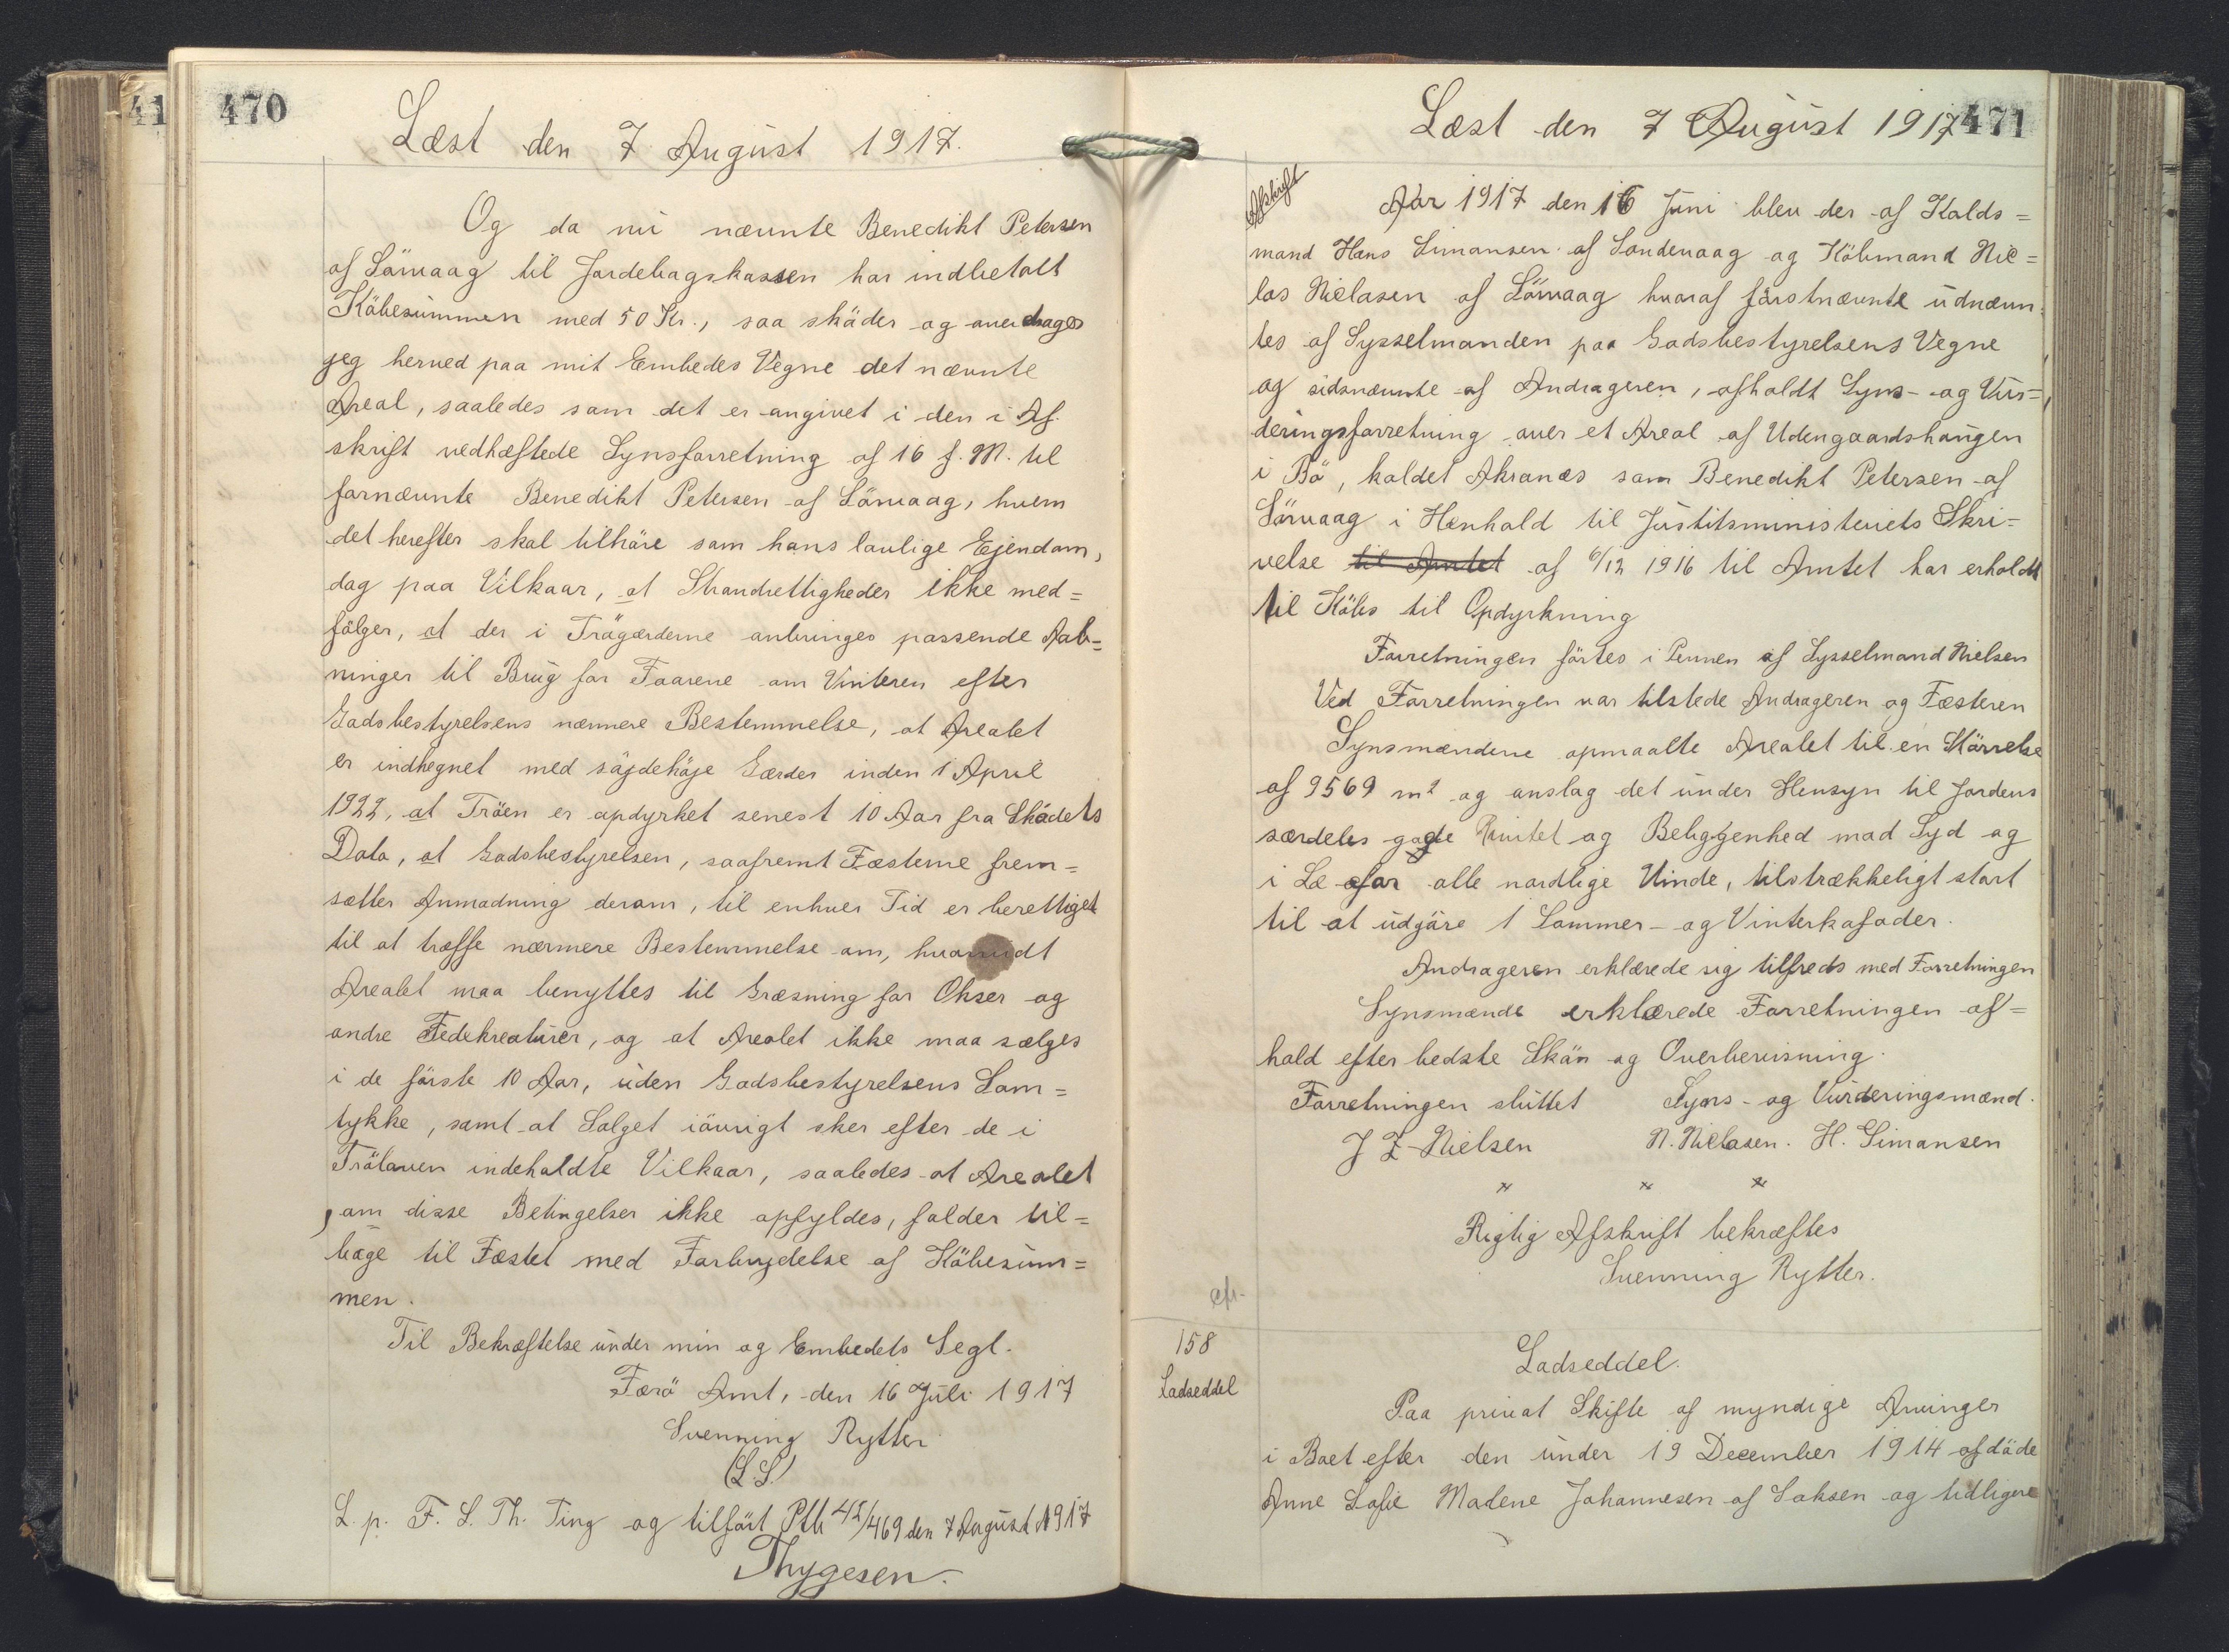 470
Læst den 7 August 1917.
Og da nu nævnte Benedikt Petersen
af Sörvaag til Jordebogskassen har indbetalt
Köbesummen med 50 Kr., saa skäder og overdrager
jeg herved paa mit Embedes Vegne det nævnte
Areal, saaledes som det er angivet i den i Af-
skrift vedhæftede Synsforretning af 16 f. M. til
fornævnte Benedikt Petersen af Sörvaag, hvem
det herefter skal tilhöre som hans lovlige Ejendom,
dog paa Vilkaar, at Strandrettigheder ikke med=
fölger, at der i Trögærderne anbringes passende Aab=
ninger til Brug for Faarene om Vinteren efter
Godsbestyrelsens nærmere Bestemmelse, at Arealet
er indhegnet med söjdehöje Gærder inden 1 April
1922, at Tröen er opdyrket senest 10 Aar fra Sködets
Dato, at Godsbestyrelsen, saafremt Fæsterne frem=
sætter Anmodning derom, til enhver Tid er berettiget
til at træffe nærmere Bestemmelse om, hvorvidt
Arealet maa benyttes til Græsning for Okser og
andre Fedekreaturer, og at Arealet ikke maa sælges
i de förste 10 Aar, uden Godsbestyrelsens Sam=
tykke, samt at Salget iövrigt sker efter de i
Tröloven indeholdte Vilkaar, saaledes at Arealet
, om disse Betingelser ikke opfyldes, falder til=
bage til Fæstet med Forbrydelse af Köbesum=
men.
Til Bekræftelse under min og Embedets Segl.
Færö Amt, den 16 Juli 1917
Svenning Rytter
(L.S.)
L. p. F. S. Th. Ting og tilfört Ptb 45/469 den 7 August 1917
Thygesen.
Læst den 7 August 1917
471
Afskrift
Aar 1917 den 16 Juni blev der af Kalds=
mand Hans Simonsen af Sandevaag og Köbmand Nic=
las Niclasen af Sörvaag hvoraf förstnævnte udnævn=
tes af Sysselmanden paa Godsbestyrelsens Vegne
og sidsnævnte af Andrageren, afholdt Syns- og Vur=
deringsforretning over et Areal af Udengaardshaugen
i Bö, kaldet Akranæs som Benedikt Petersen af
Sörvaag i Henhold til Justitsministeriets Skri=
velse til Amtet af 6/12 1916 til Amtet har erholdt
til Köbs til Opdyrkning
Forretningen förtes i Pennen af Sysselmand Nielsen
Ved Forretningen var tilstede Andrageren og Fæsteren
Synsmændene opmaalte Arealet til en Störrelse
af 9569 m² og anslog det under Hensyn til Jordens
særdeles gode Bonitet og Beliggenhed mod Syd og
i Læ for alle nordlige Vinde, tilstrækkeligt stort
til at udgöre 1 Sommer- og Vinterkofoder.
Andrageren erklærede sig tilfreds med Forretningen
Synsmænde erklærede Forretningen af=
hold efter bedste Skön og Overbevisning.
Forretningen sluttet Syns- og Vurderingsmænd.
J Z Nielsen N. Niclasen. H. Simonsen
" " "
Rigtig Afskrift bekræftes
Svenning Rytter.
cfr.
158
Ladseddel
Ladseddel.
Paa privat Skifte af myndige Arvinger
i Boet efter den under 19 December 1914 afdöde
Anne Sofie Malene Johannesen af Saksen og tidligere